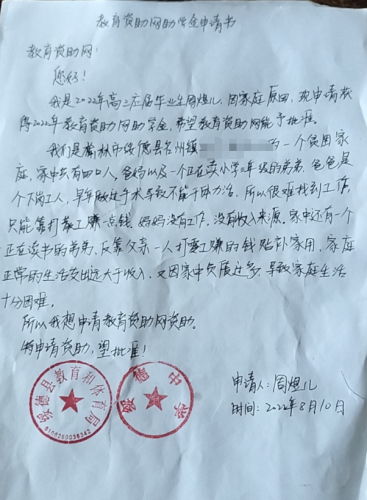 教育资助网助学金申请书
教育资助网:
您好!
我是2022年高三应届毕业生周煜儿,因家庭原因,现申请获
得2022年教育资助网助学金,希望教育资助网能予批准。
我们是榆林市绥德县名州镇 的一个贫困家
庭,家中共有四口人,爸妈以及一个正在读小学6年级的弟弟,爸爸是
个下岗工人,早年做过手术导致不能干体力活。所以很难找到工作,
只能靠打工赚点钱,妈妈没有工作,没有收入来源,家中还有一个
正在读书的弟弟,仅靠父亲一人打工赚的钱贴补家用,家庭
正常的生活支出远大于收入,又因家中负债过多,导致家庭生活
十分困难。
所以我想申请教育资助网资助。
特申请资助,望批准!
绥德县教育和体育局
6108260039342
绥德中学
申请人:周煜儿
时间:2022年8月10日